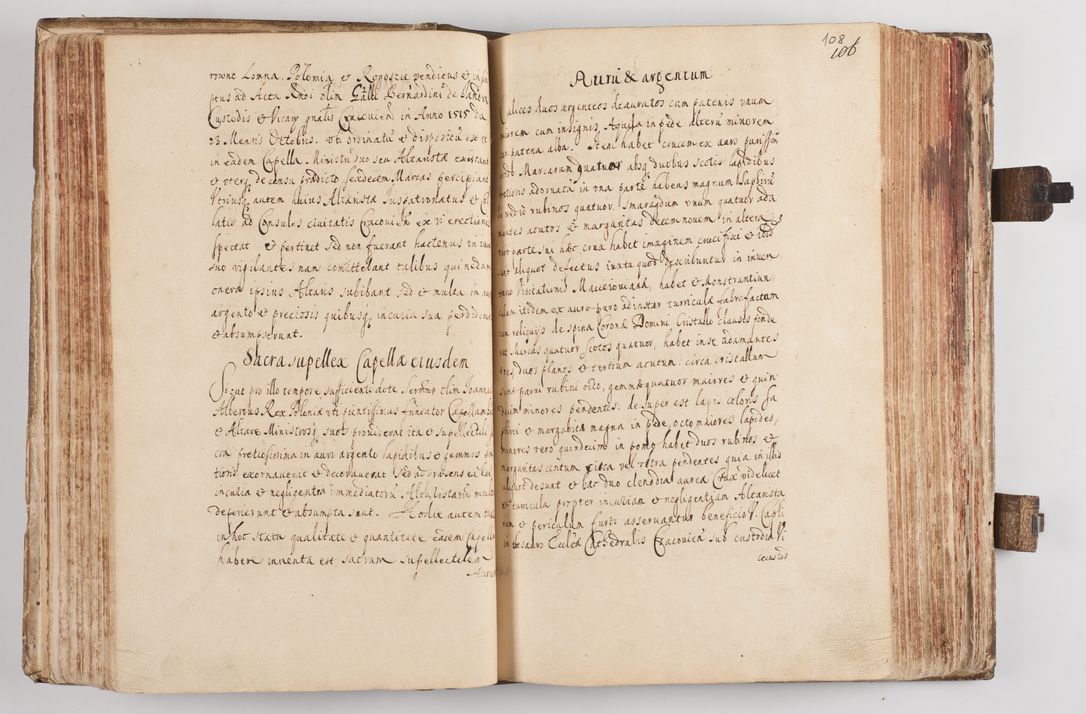 rowne Lomna. Polomia et Rogoszie pendicus et in
ptus ad Acta Rndi olim Galli Bernardini de
Custodis et Vicary gnalis Cracovien in Anno 1515 die
23 Mensis Octobris. Vbi ordinatũ et dispositũ est vt
in eadem Capella Ministri duo seu Altaristæ existant
et vterq de censu prædicto sexdecem Marcas percipiant
Vtriusq autem huius Altaristæ Iuspatronatus et Col
latio ad Consules ciuitatis Cracovien ex vi erectionis
spectat et pertinet sed non fuerunt hactenus in iure
suo vigilantes nam comittebant talibus qui nedum
onera ipsius Altaris subibant sed et multa in auro
argento et preciosis quibusq incuria sua perdiderunt
et absumpserunt.
Sacra supellex Capellæ eiusdem
Sicut pro illo tempore sufficienti dote Sermus olim Ioannes
Albertus Rex Poloniæ vti pientissimus fundator Capellam
et Altare Ministrosq suos prouiderat ita et supellectili
cra pretiosissima in auri argento lapidibus et gemmis
tione exornauerit et decorauerat sed
incuria et negligentia immediatorũ Altaristarũ multa
defenerunt et absumpta sunt. Hodie autem
in hoc statu qualitate et quantitate eadem Capella
habere inuenta est sacram supellectilem
108
106
Auru & argentum
Calices duos argenteos deauratos cum patenis vnum
maiorem cum insignis, Aquila in pede alterũ minorem
cum patena alba. Item habet crucem ex auro purissimo
Marcarum quatuor absq duobus scotis lapidibus
præciosis adornata in vna parte habens magnum Saphirũ
rubinos quatuor. Smaragdum vnum quatuor ada
mantes acutos et margaritas decemnouem in altera
vero parte sui hæc crux habet imaginem crucifixi et ibid
sunt aliquot defectus iuxta quod describuntur in inuen
tario Visitationis Maciejoviana, habet et Monstrantiun
culam itidem ex auro puro ad instar turriculæ fabrefactam
cum reliquijs de spina Coronæ Domini Cristallo clausis ponde
rat Marcas quatuor scotos quatuor, habet in se adamantes
tres, duos planos et tertium acutum. circa cristallum
sunt parui rubini octo, gemmæ quatuor maiores et quin
decim minores pendentes. desuper est lapis coloris sa
phirei et margarita magna in pede, octo maiores lapides,
minores vero quindecim in pomo habet duos rubinos et
margaritas centum citra vel vltra pendentes quia in illis
aliquot desunt et hæc duo clenodia aurea Crux videlicet
et turricula propter incuriam et negligentiam Altarista
rum et periculum furti asseruantur beneficio V. Capli
in thesauro Ecclæ Cathedralis Cracovien sub custodia Vi
cecustod